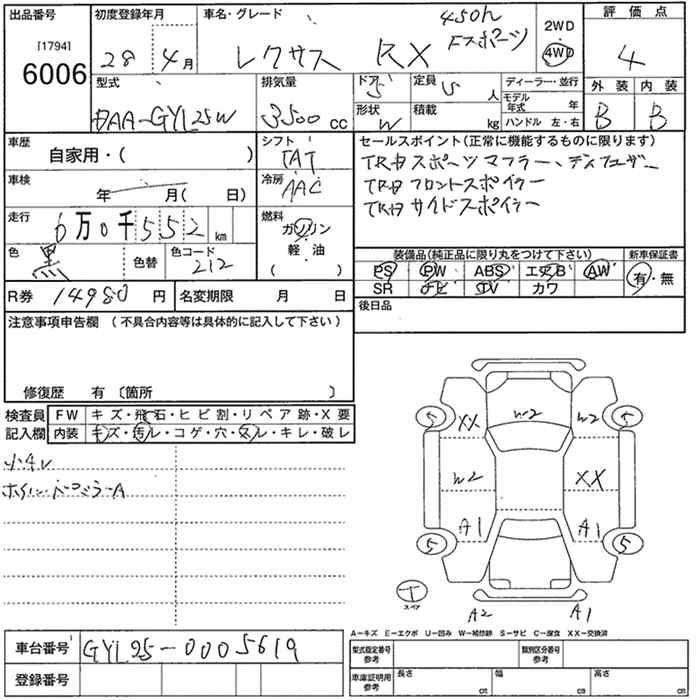 出品番号 初度登録年月 車名・グレード 評価点
[1794]
6006
28年 4月
レクサス RX 450h
Fスポーツ
2WD
・
4WD
4
型式 排気量 ドア 定員 ディーラー・並行 外装 内装
DAA-GYL25W 3500cc 5 5人 モデル年式 年 B B
形状 積載 ハンドル 左・右
W kg
車歴 シフト セールスポイント(正常に機能するものに限ります)
自家用・( ) IAT TRDスポーツマフラー、ディフューザー
車検 冷房 TRDフロントスポイラー
年 月( 日) AAC TRDサイドスポイラー
走行 燃料
6万0千552km ガソリン
軽・油
( )
色 色替 色コード 装備品(純正品に限り丸をつけて下さい) 新車保証書
黒 212 PS PW ABS エアB AW 有・無
SR ナビ TV カワ
R券 14980円 名変期限 月 日 後日品
注意事項申告欄(不具合内容等は具体的に記入して下さい)
修復歴 有〔箇所 〕
検査員 FW キズ・飛石・ヒビ割・リペア跡・X要
記入欄 内装 キズ・汚レ・コゲ・穴・スレ・キレ・破レ
小キレ
W2 W2
XX
5 5
W2 XX
A1 A1
5 5
T
スペア
A2 A1
A-キズ E-エクボ U-凹み W-補修跡 S-サビ C-腐食 XX-交換済
車台番号 GYL25-0005619 型式指定番号 参考 類別区分番号 参考
登録番号 車庫証明用 参考 長さ cm 幅 cm 高さ cm